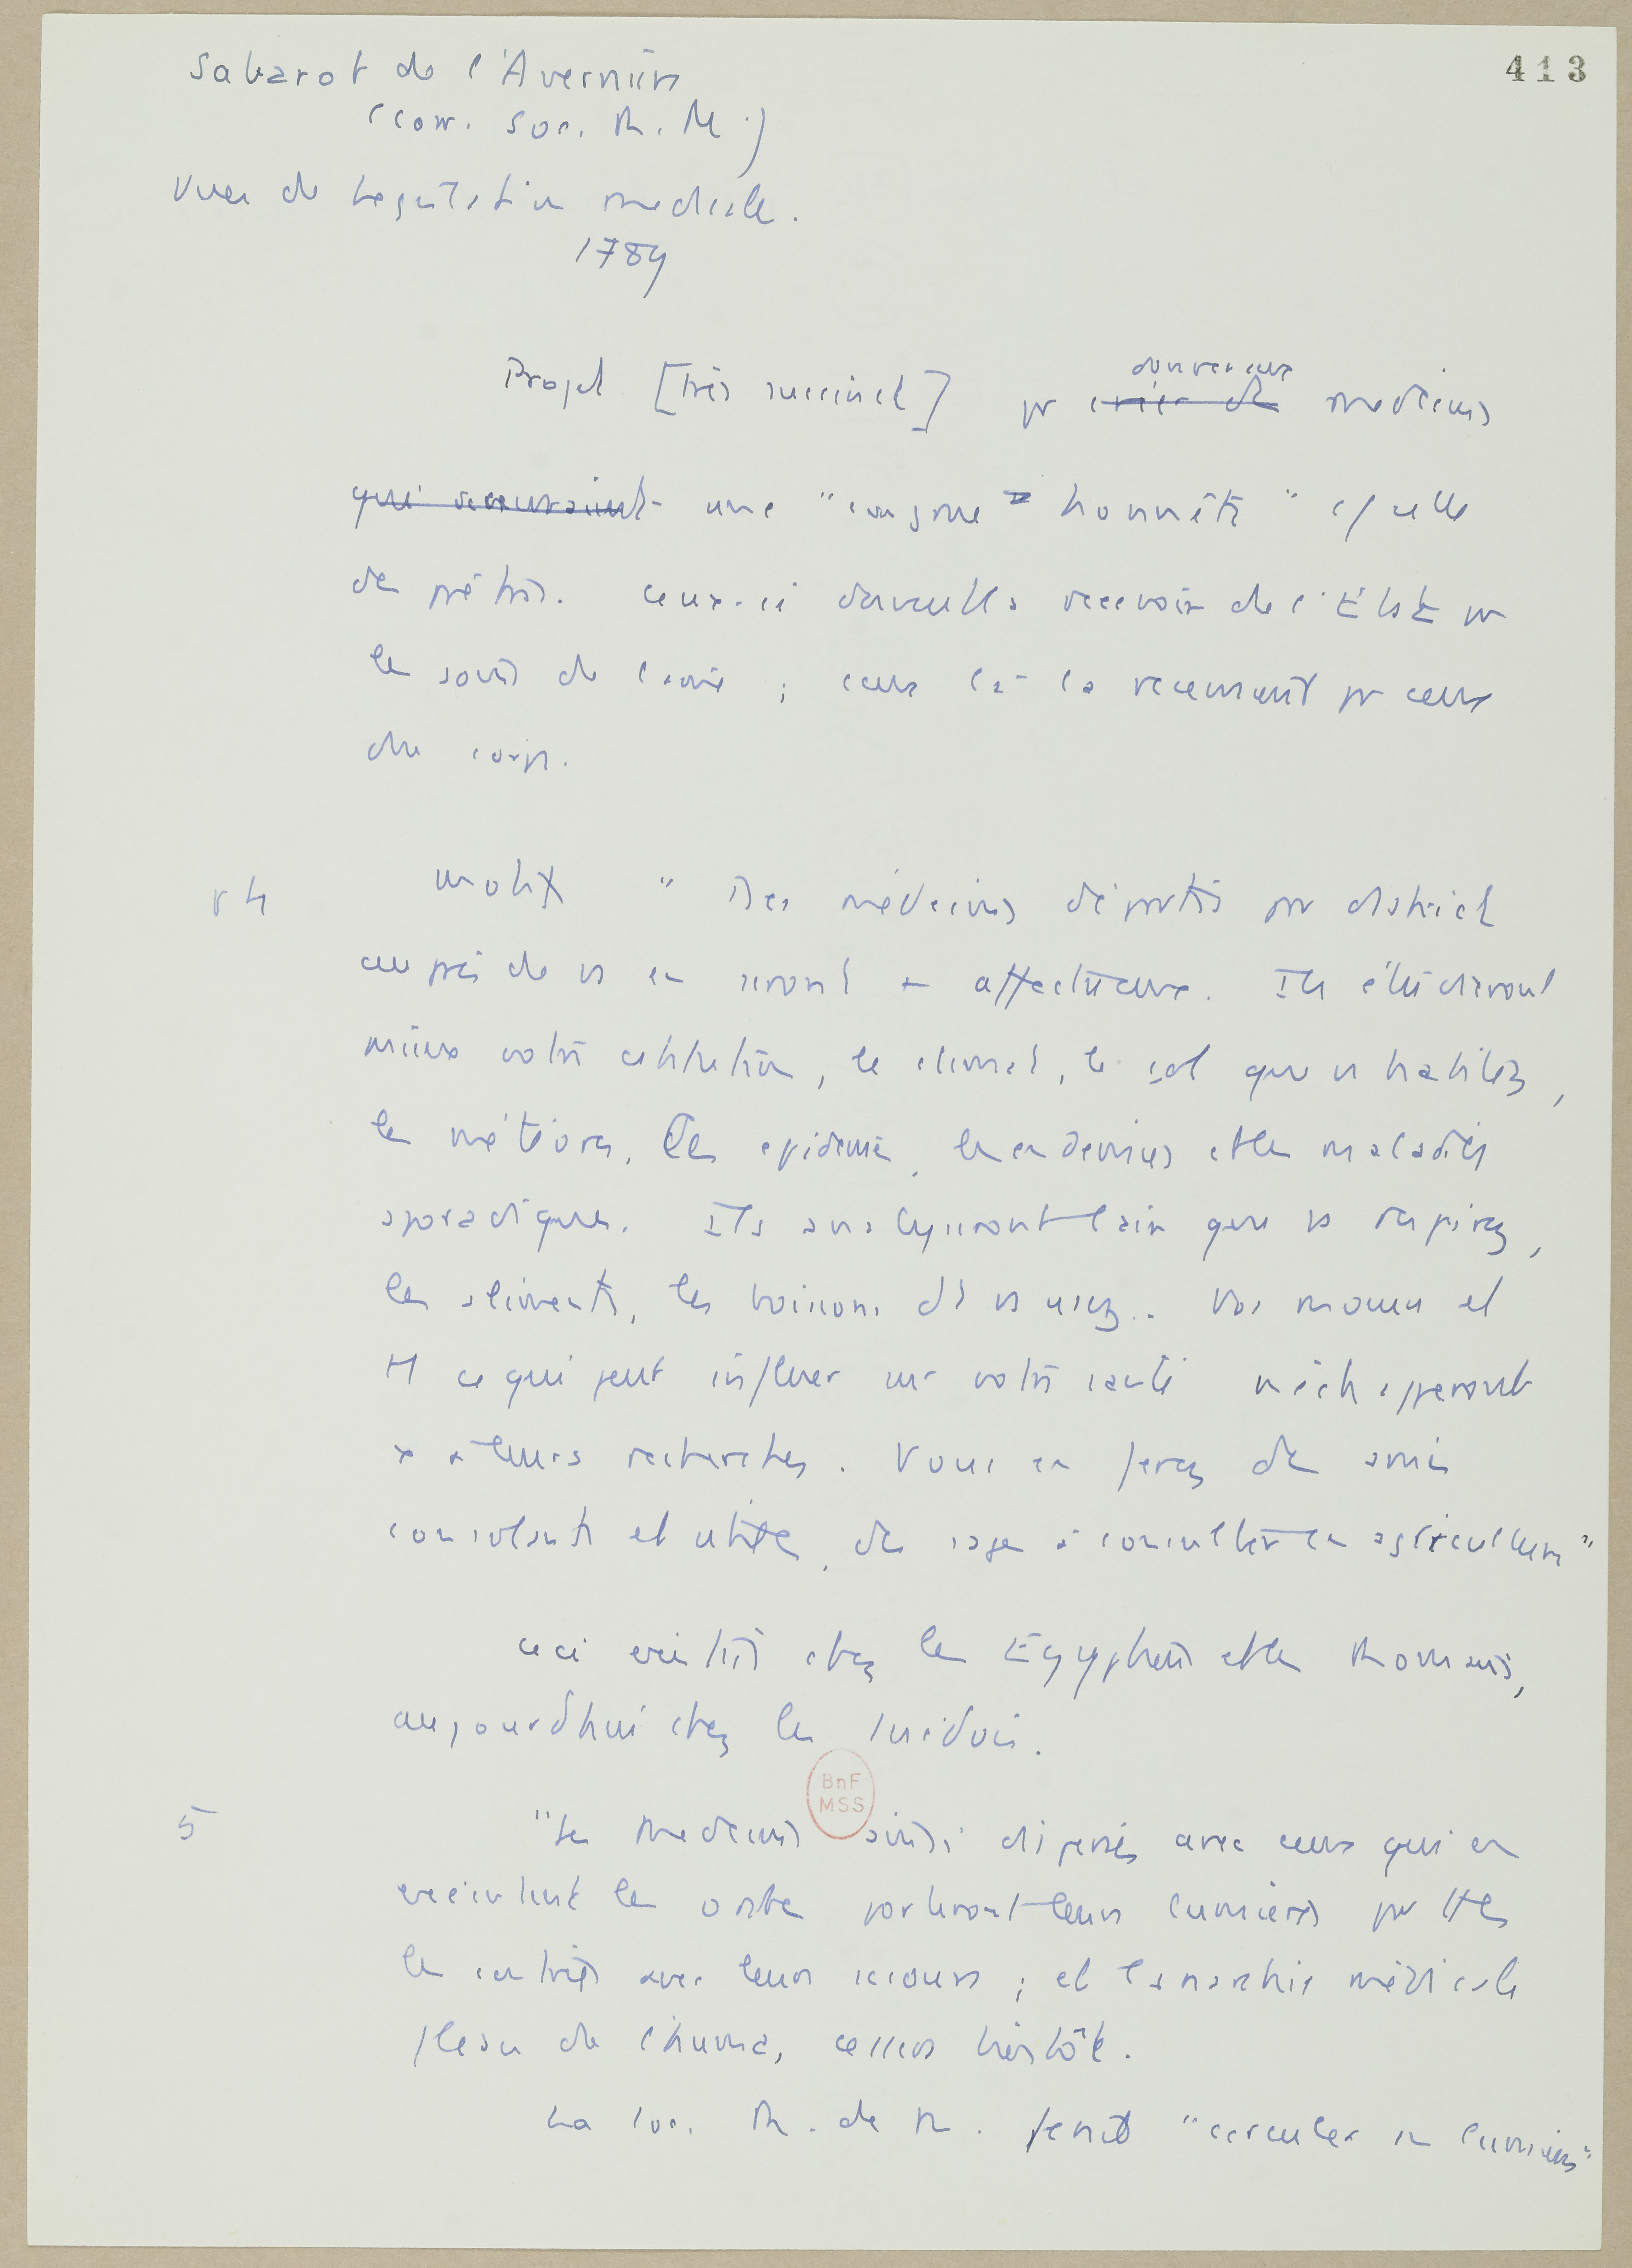 413
Sabarot de l'Avernière
(corr. Soc. R. M.)
Vues de Législation médicale.
1789
Projet [très succinct] pr donner aux
médecins
une "congrue honnête" c/ celle
des prêtres. Ceux-ci devant la recevoir de l'Etat pr
les soins de l'âme ; ceux là la recevraient pr ceux
du corps.
p 4
Motif " Des médecins départis par district
auprès de vs en seront + affectueux. Ils étudieront
mieux votre constitution, le climat, le sol que vs habitez,
les météores, les épidémies, les endémies et les maladies
sporadiques. Ils analyseront l'air que vs respirez,
les aliments, les boissons dt vs usez. Vos moeurs et
tt ce qui peut influer sur votre santé n'échapperont
pas à leurs recherches. Vous en ferez des amis
consolants et utiles, des sages à consulter en agriculture"
Ceci existait chez les Egyptiens et les Romains,
aujourd'hui chez les Suédois.
5
"Les médecins ainsi dispersés avec ceux qui en
existent les ordres porteront leurs lumières par ttes
les contrées avec leurs secours ; et l'anarchie médicale
fléau de l'huma, cessera bientôt.
La Soc. R. de M. ferait "circuler ces lumières"
BnF
MSS